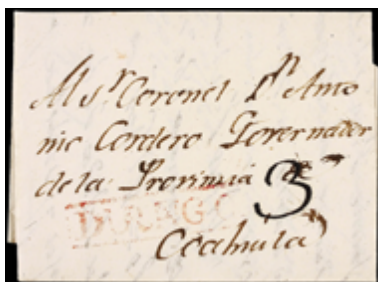 Al s.r Coronel D.n Anto
nio Cordero Governador
de la Provincia de
3
DURANGO
Coahuila